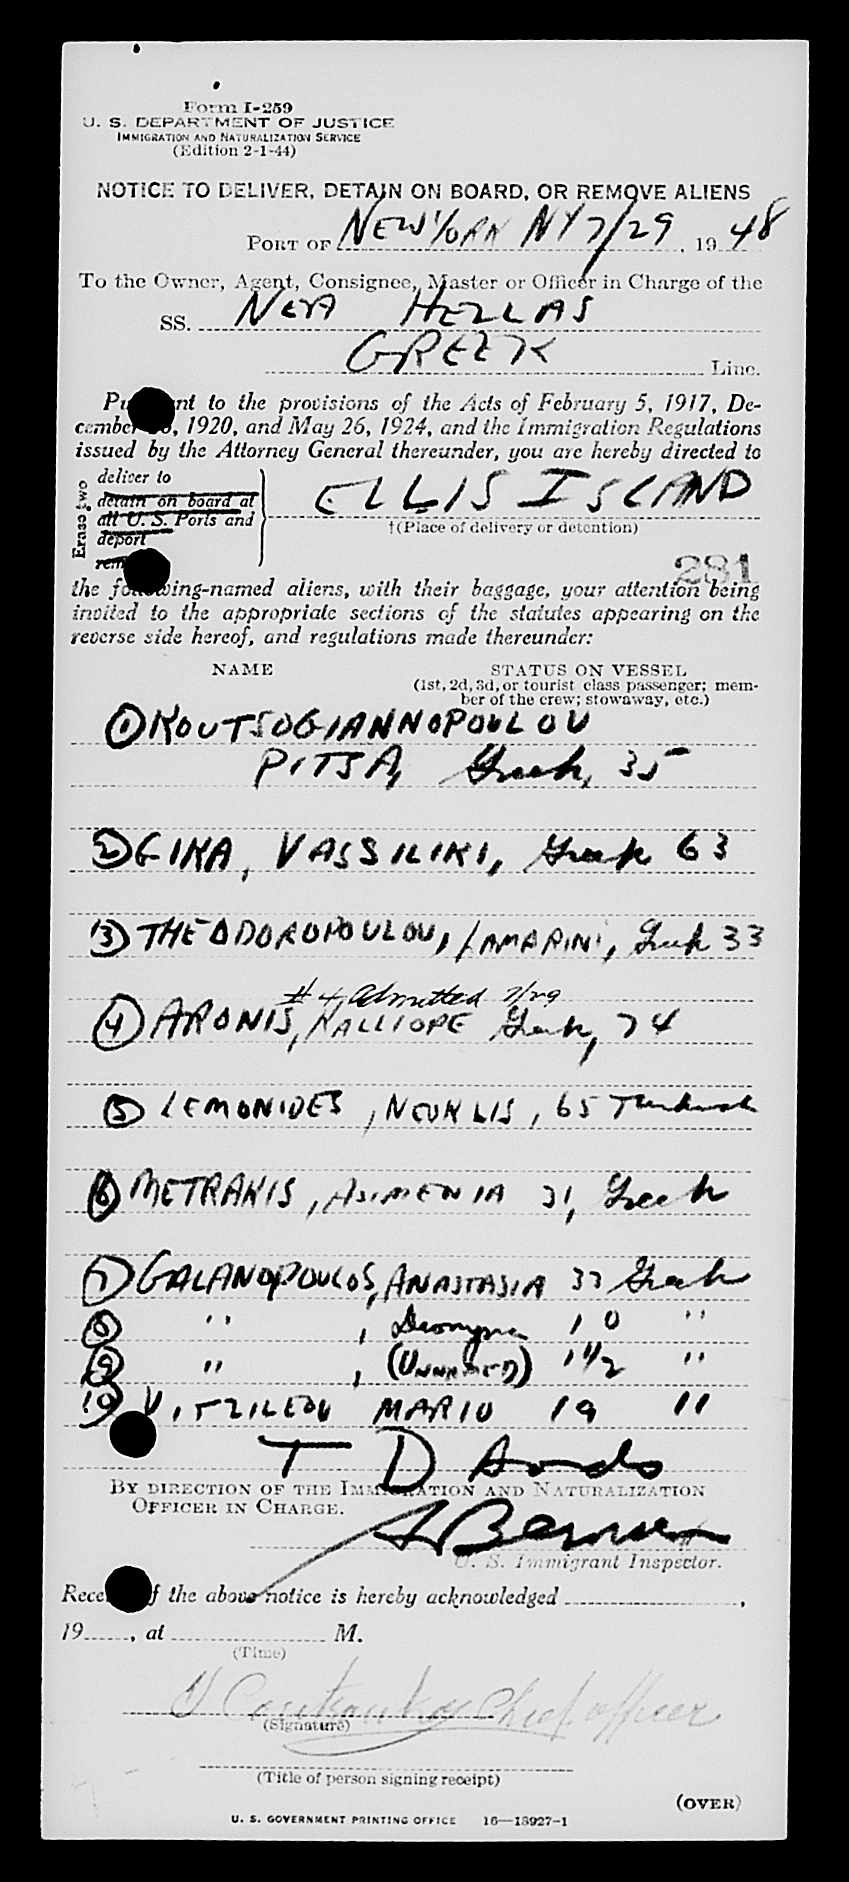 Form I-259
U. S. DEPARTMENT OF JUSTICE
IMMIGRATION AND NATURALIZATION SERVICE
(Edition 2-1-44)
NOTICE TO DELIVER, DETAIN ON BOARD, OR REMOVE ALIENS
PORT OF NEW YORK NY 7/29, 1948
To the Owner, Agent, Consignee, Master or Officer in Charge of the
SS. NEA HELLAS
GREEK Line.
Pu nt to the provisions of the Acts of February 5, 1917, De-
cember , 1920, and May 26, 1924, and the Immigration Regulations
issued by the Attorney General thereunder, you are hereby directed to
Erase two
deliver to
detain on board at
all U. S. Ports and
deport
rem
ELLIS ISLAND
†(Place of delivery or detention)
281
the following-named aliens, with their baggage, your attention being
invited to the appropriate sections of the statutes appearing on the
reverse side hereof, and regulations made thereunder:
NAME STATUS ON VESSEL
(1st, 2d, 3d, or tourist class passenger; mem-
ber of the crew; stowaway, etc.)
1 KOUTSOGIANNOPOULOU
PITSA, Greek, 35
2 GIKA, VASSILIKI, Greek 63
3 THEODOROPOULOU, Greek 33
#4 Admitted 7/29
4 ARONIS, KALLIOPE Greek, 74
5 LEMONIDES, NEOKLIS, 65
6 METRAKIS, ASIMENIA 31, Greek
7 GALANOPOULOS, ANASTASIA 37 Greek
8 " , 10 "
9 " , (UNNAMED) 1 1/2 "
10 MARIO 19 "
T D
BY DIRECTION OF THE IMMIGRATION AND NATURALIZATION
OFFICER IN CHARGE.
U. S. Immigrant Inspector.
Rece f the above notice is hereby acknowledged ,
19 , at M.
(Time)
Chief officer
(Signature)
(Title of person signing receipt)
(OVER)
U. S. GOVERNMENT PRINTING OFFICE 16—13927-1